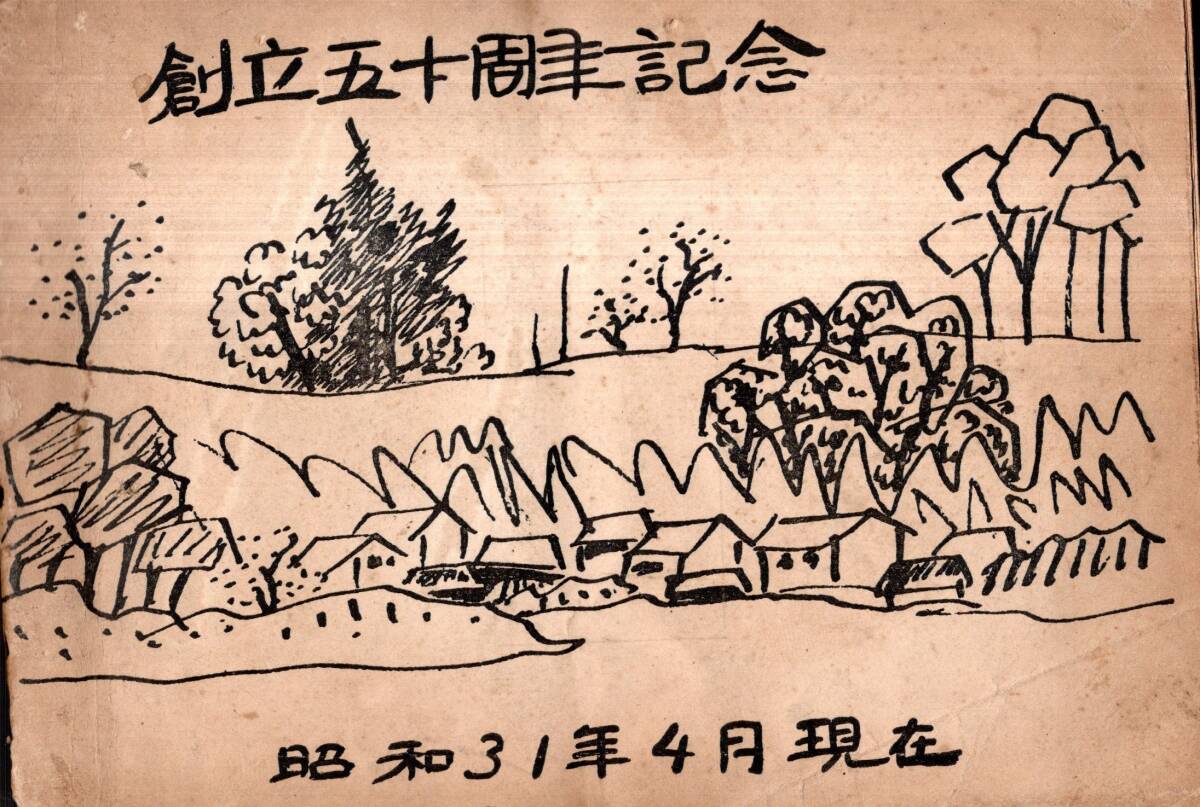 創立五十周年記念
昭和31年4月現在